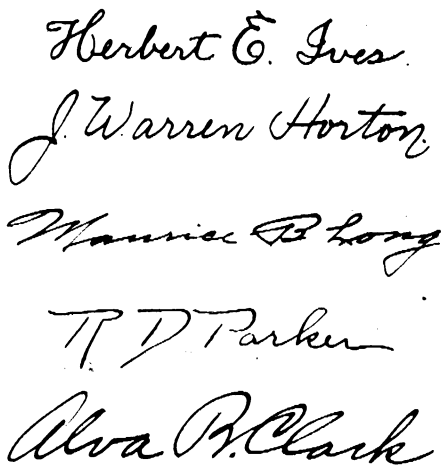 Herbert E. Ives.
J. Warren Horton.
Maurice B Long
R. D Parker
Alva B. Clark